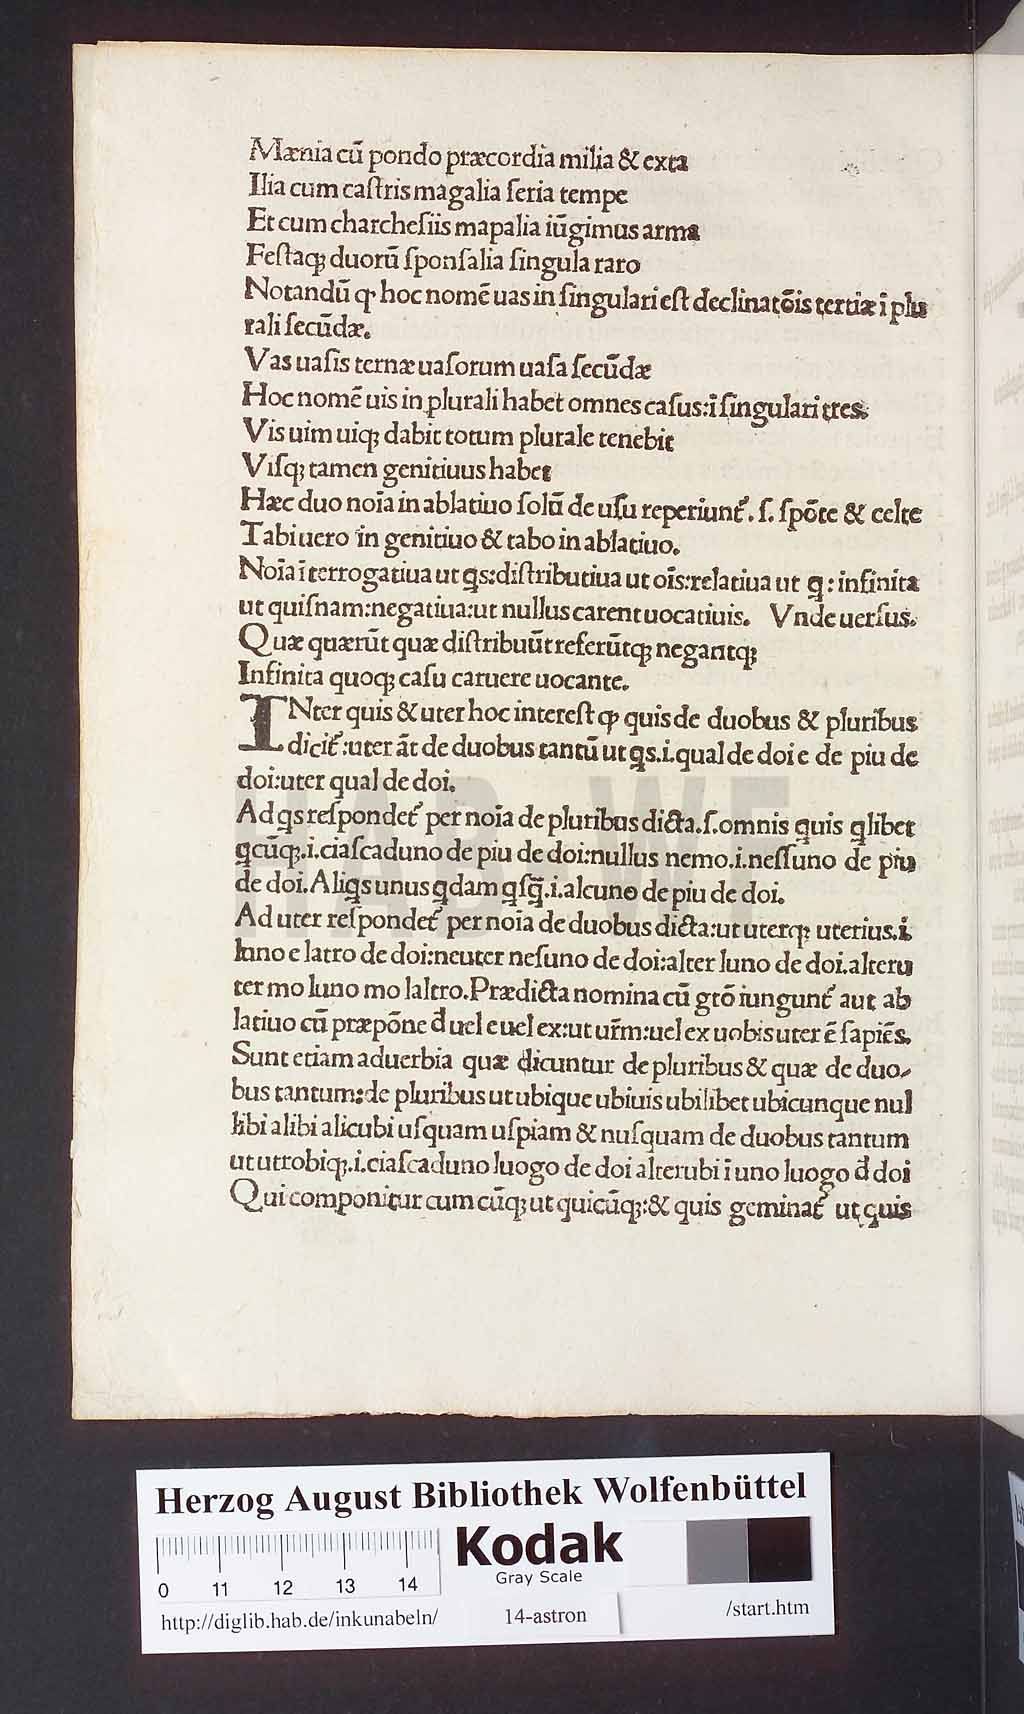 Mænia cū pondo præcordia milia & exta
Ilia cum caſtris magalia ſeria tempe
Et cum charcheſiis mapalia iūgimus arma
Feſtaqꝫ duorū ſponſalia ſingula raro
Notandū ꝙ hoc nomē uas in ſingulari eſt declinatōis tertiæ ī plu
rali ſecūdæ.
Vas uaſis ternæ uaſorum uaſa ſecūdæ
Hoc nomē uis in plurali habet omnes caſus:ī ſingulari tres.
Vis uim uiqꝫ dabit totum plurale tenebit
Viſqꝫ tamen genitiuus habet
Hæc duo noīa in ablatiuo ſolū de uſu reperiunt᷑. ſ. ſpōte & celte
Tabi uero in genitiuo & tabo in ablatiuo.
Noīa īterrogatiua ut q̄s:diſtributiua ut oīs:relatiua ut q̄: infinita
ut quiſnam:negatiua:ut nullus carent uocatiuis. Vnde uerſus.
Quæ quærūt quæ diſtribuūt referūtqꝫ negantqꝫ
Infinita quoqꝫ caſu caruere uocante.
INter quis & uter hoc intereſt ꝙ quis de duobus & pluribus
dicit᷑:uter āt de duobus tantū ut q̄s.i.qual de doi e de piu de
doi:uter qual de doi.
Ad q̄s reſpondet᷑ per noīa de pluribus dicta.ſ.omnis quis q̄libet
q̄cūqꝫ.i.ciaſcaduno de piu de doi:nullus nemo.i.neſſuno de piu
de doi. Aliq̄s unus q̄dam q̄ſq̄.i.alcuno de piu de doi.
Ad uter reſpondet᷑ per noīa de duobus dicta:ut uterqꝫ uterius.i.
luno e latro de doi:neuter neſuno de doi:alter luno de doi.alteru
ter mo luno mo laltro.Prædicta nomina cū gtō iungunt᷑ aut ab
latiuo cū præpōne đ uel e uel ex:ut ur̄m:uel ex uobis uter ē ſapiēs.
Sunt etiam aduerbia quæ dicuntur de pluribus & quæ de duo/
bus tantum:de pluribus ut ubique ubiuis ubilibet ubicunque nul
libi alibi alicubi uſquam uſpiam & nuſquam de duobus tantum
ut utrobiqꝫ.i.ciaſcaduno luogo de doi alterubi ī uno luogo đ doi
Qui componitur cum cūqꝫ ut quicūqꝫ:& quis geminat᷑ ut quis
HAB-WF
Herzog August Bibliothek Wolfenbüttel
Kodak
Gray Scale
0 11 12 13 14
http://diglib.hab.de/inkunabeln/ 14-astron /start.htm